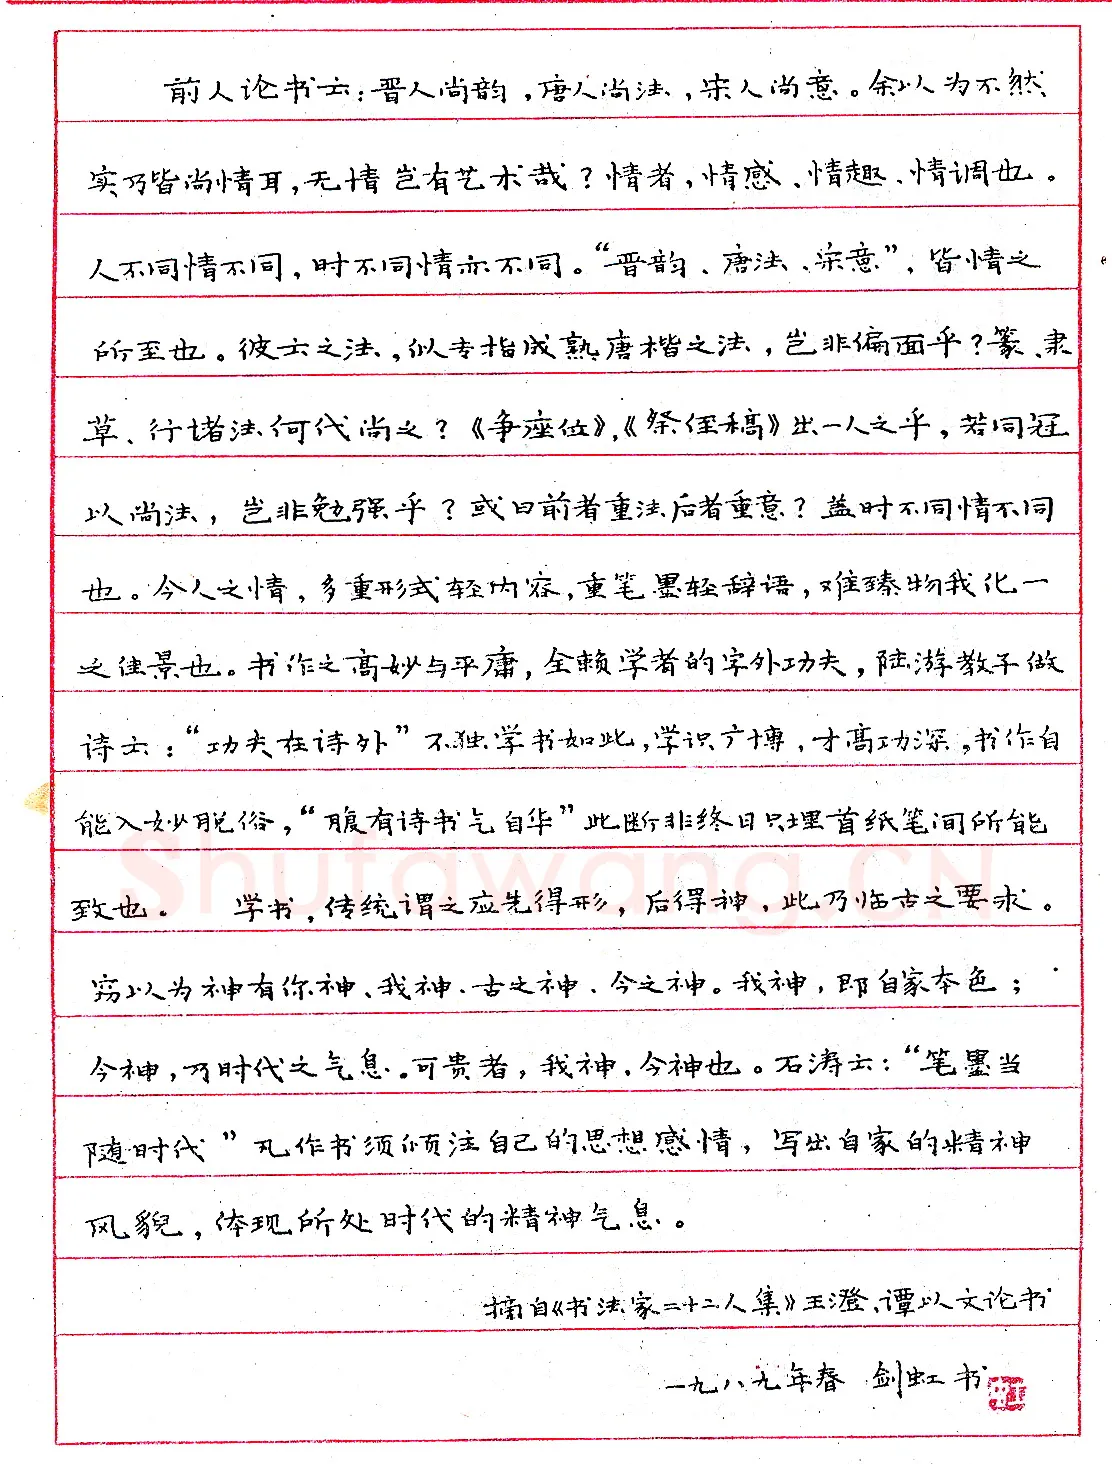 前人论书云：晋人尚韵，唐人尚法，宋人尚意。余以为不然、
实乃皆尚情耳，无情岂有艺术哉？情者，情感、情趣、情调也。
人不同情不同，时不同情亦不同。“晋韵、唐法、宋意”，皆情之
所至也。彼云之法，似专指成熟唐楷之法，岂非偏面乎？篆、隶
草、行诸法何代尚之？《争座位》，《祭侄稿》出一人之乎，若同冠
以尚法，岂非勉强乎？或曰前者重法后者重意？盖时不同情不同
也。今人之情，多重形式轻内容，重笔墨轻辞语，难臻物我化一
之佳景也。书作之高妙与平庸，全赖学者的字外功夫，陆游教子做
诗云：“功夫在诗外”不独学书如此，学识广博，才高功深，书作自
能入妙脱俗，“腹有诗书气自华”此断非终日只埋首纸笔间所能
致也。　学书，传统谓之应先得形，后得神，此乃临古之要求。
窃以为神有你神、我神、古之神、今之神。我神，即自家本色；
今神，乃时代之气息。可贵者，我神，今神也。石涛云：“笔墨当
随时代”凡作书须倾注自己的思想感情，写出自家的精神
风貌，体现所处时代的精神气息。
摘自《书法家二十二人集》王澄、谭以文论书
一九八九年春　剑虹书
Shufawang.CN